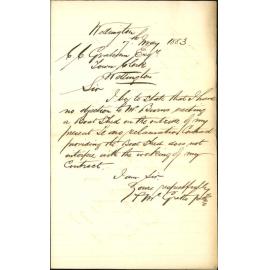 Wellington
7th May 1883
C C Graham Esqr
Town Clerk
Wellington
Sir
I beg to state that I have
no objection to Mr Burns erecting
a Boat Shed on the outside of my
present Te Aro reclamation Contract
providing the Boat Shed does not
interfere with the working of my
Contract.
I am Sir
Yours respectfully